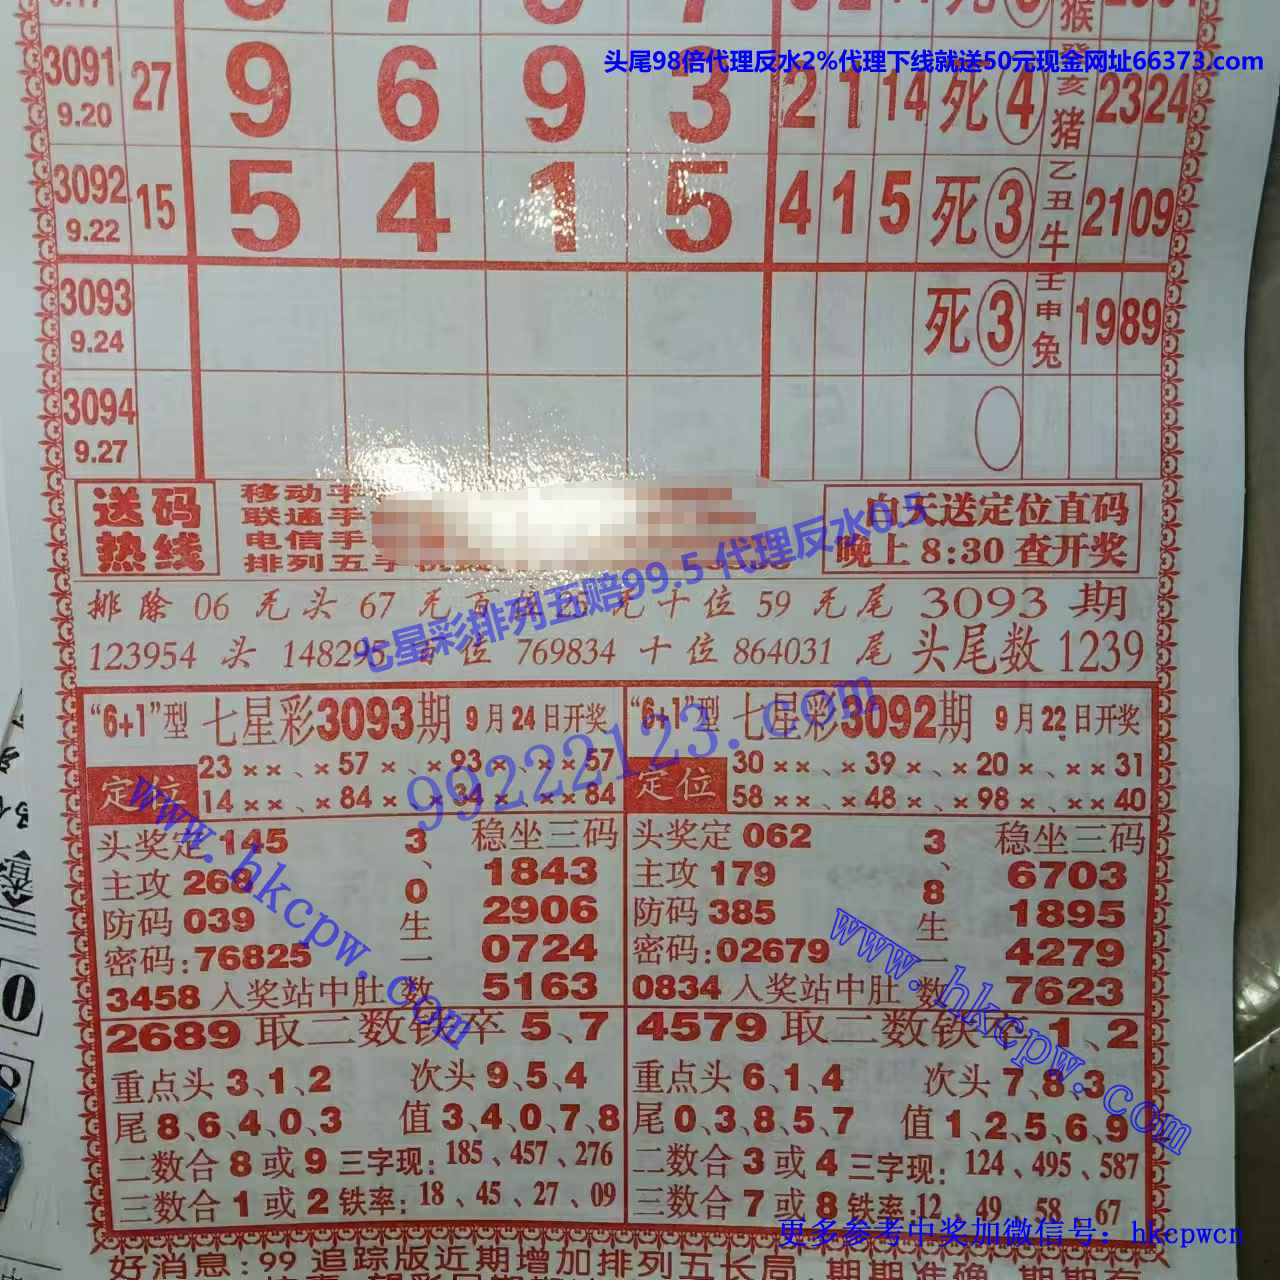 头尾98倍代理反水2%代理下线就送50元现金网址66373.com
3091 27 9 6 9 3 2 1 14 死 4 亥 猪 23 24
9.20
3092 15 5 4 1 5 4 1 5 死 3 乙丑 牛 21 09
9.22
3093 死 3 壬申 兔 19 89
9.24
3094
9.27
送码 移动手
热线 联通手
电信手
排列五手
白天送定位直码
晚上8:30查开奖
七星彩排列五赔99.5 代理反水0.5
排除 06 无头 67 无百位 25 无十位 59 无尾 3093 期
123954 头 148296 百位 769834 十位 864031 尾 头尾数 1239
99222123.com
“6+1”型 七星彩3093期 9月24日开奖
定位 23××、×57×、×93×、××57
14××、×84×、×34×、××84
头奖定 145 3、0生一数 稳坐三码
主攻 268 1843
防码 039 2906
密码:76825 0724
3458 入奖站中肚 5163
2689 取二数铁卒 5、7
重点头 3、1、2 次头 9、5、4
尾 8、6、4、0、3 值 3、4、0、7、8
二数合 8 或 9 三字现: 185、457、276
三数合 1 或 2 铁率: 18、45、27、09
“6+1”型 七星彩3092期 9月22日开奖
定位 30××、×39×、×20×、××31
58××、×48×、×98×、××40
头奖定 062 3、8生一数 稳坐三码
主攻 179 6703
防码 385 1895
密码:02679 4279
0834 入奖站中肚 7623
4579 取二数铁卒 1、2
重点头 6、1、4 次头 7、8、3
尾 0、3、8、5、7 值 1、2、5、6、9
二数合 3 或 4 三字现: 124、495、587
三数合 7 或 8 铁率:12、49、58、67
www.hkcpw.com
www.hkcpw.com
更多参考中奖加微信号：hkcpwcn
好消息:99 追踪版近期增加排列五长局,期期准确,期期有